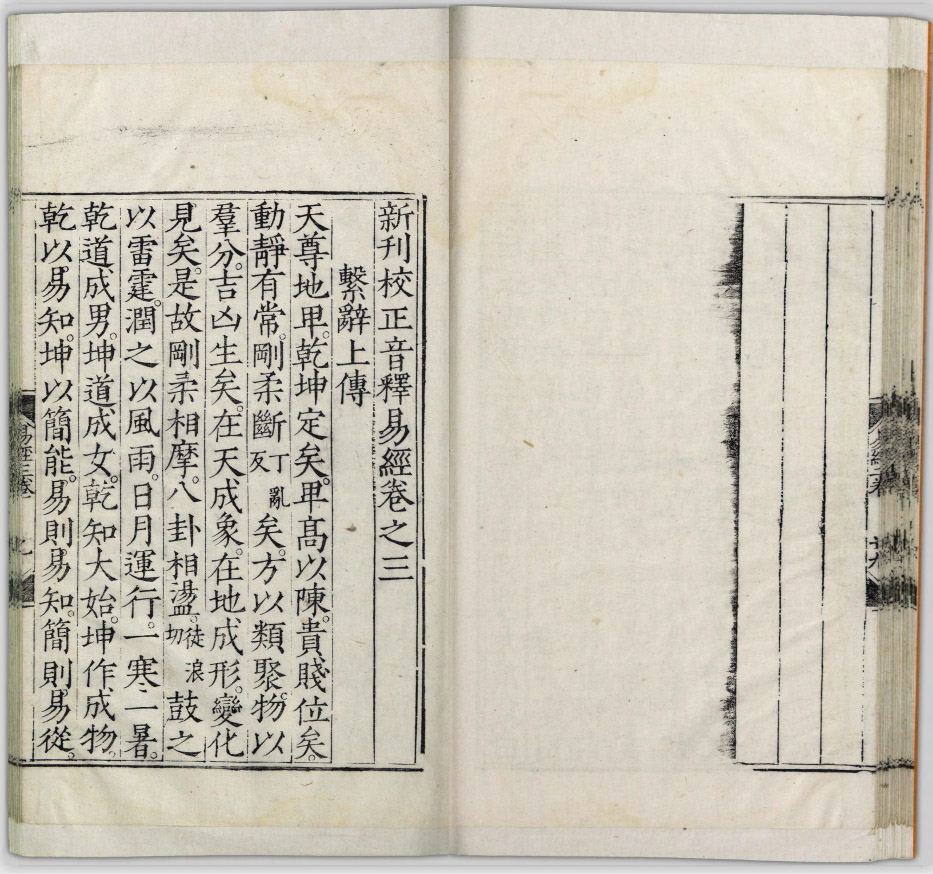 易經二卷
廿九
新刊校正音釋易經卷之三
繫辭上傳
天尊地𤰞。乾坤定矣。𤰞髙以陳。貴賤位矣。
動靜有常。剛柔斷丁亂反矣。方以類聚。物以
羣分。吉凶生矣。在天成象。在地成形。變化
見矣。是故剛柔相摩。八卦相盪。徒浪切鼓之
以雷霆。潤之以風雨。日月運行。一寒一暑。
乾道成男。坤道成女。乾知大始。坤作成物。
乾以易知。坤以簡能。易則易知。簡則易從。
易經三卷